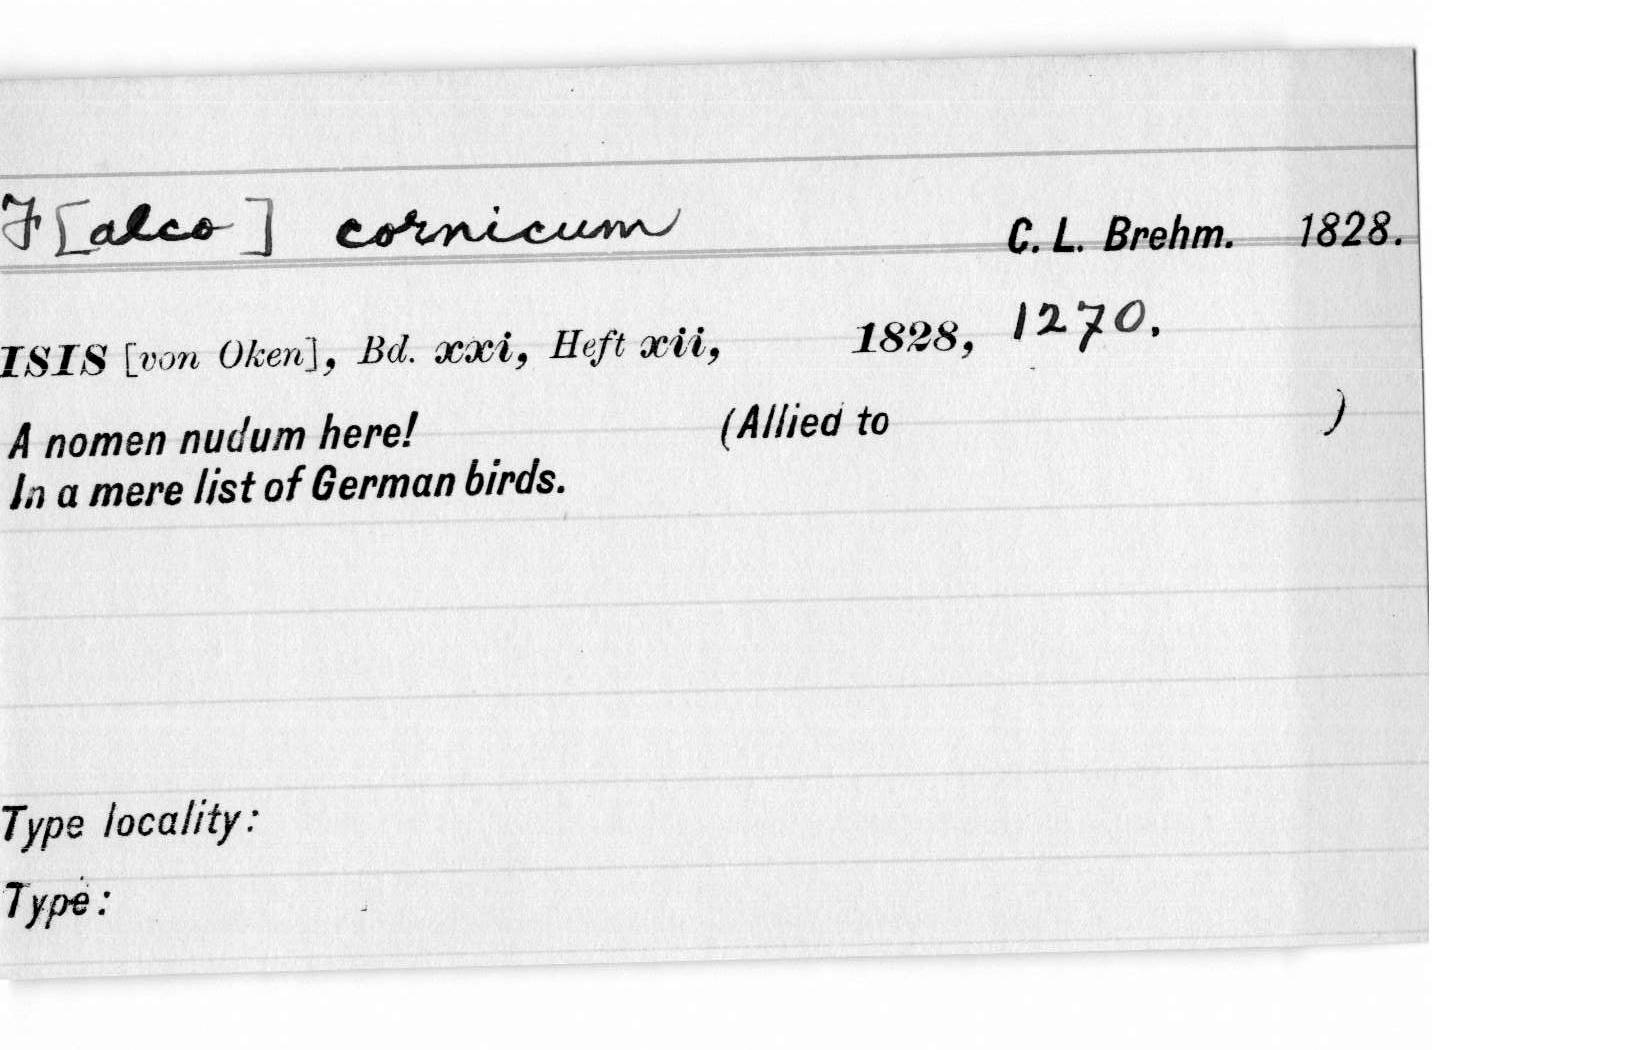 F[alco] cornicum C. L. Brehm. 1828.
ISIS [von Oken], Bd. xxi, Heft xii, 1828, 1270.
A nomen nudum here! (Allied to )
In a mere list of German birds.
Type locality:
Type: